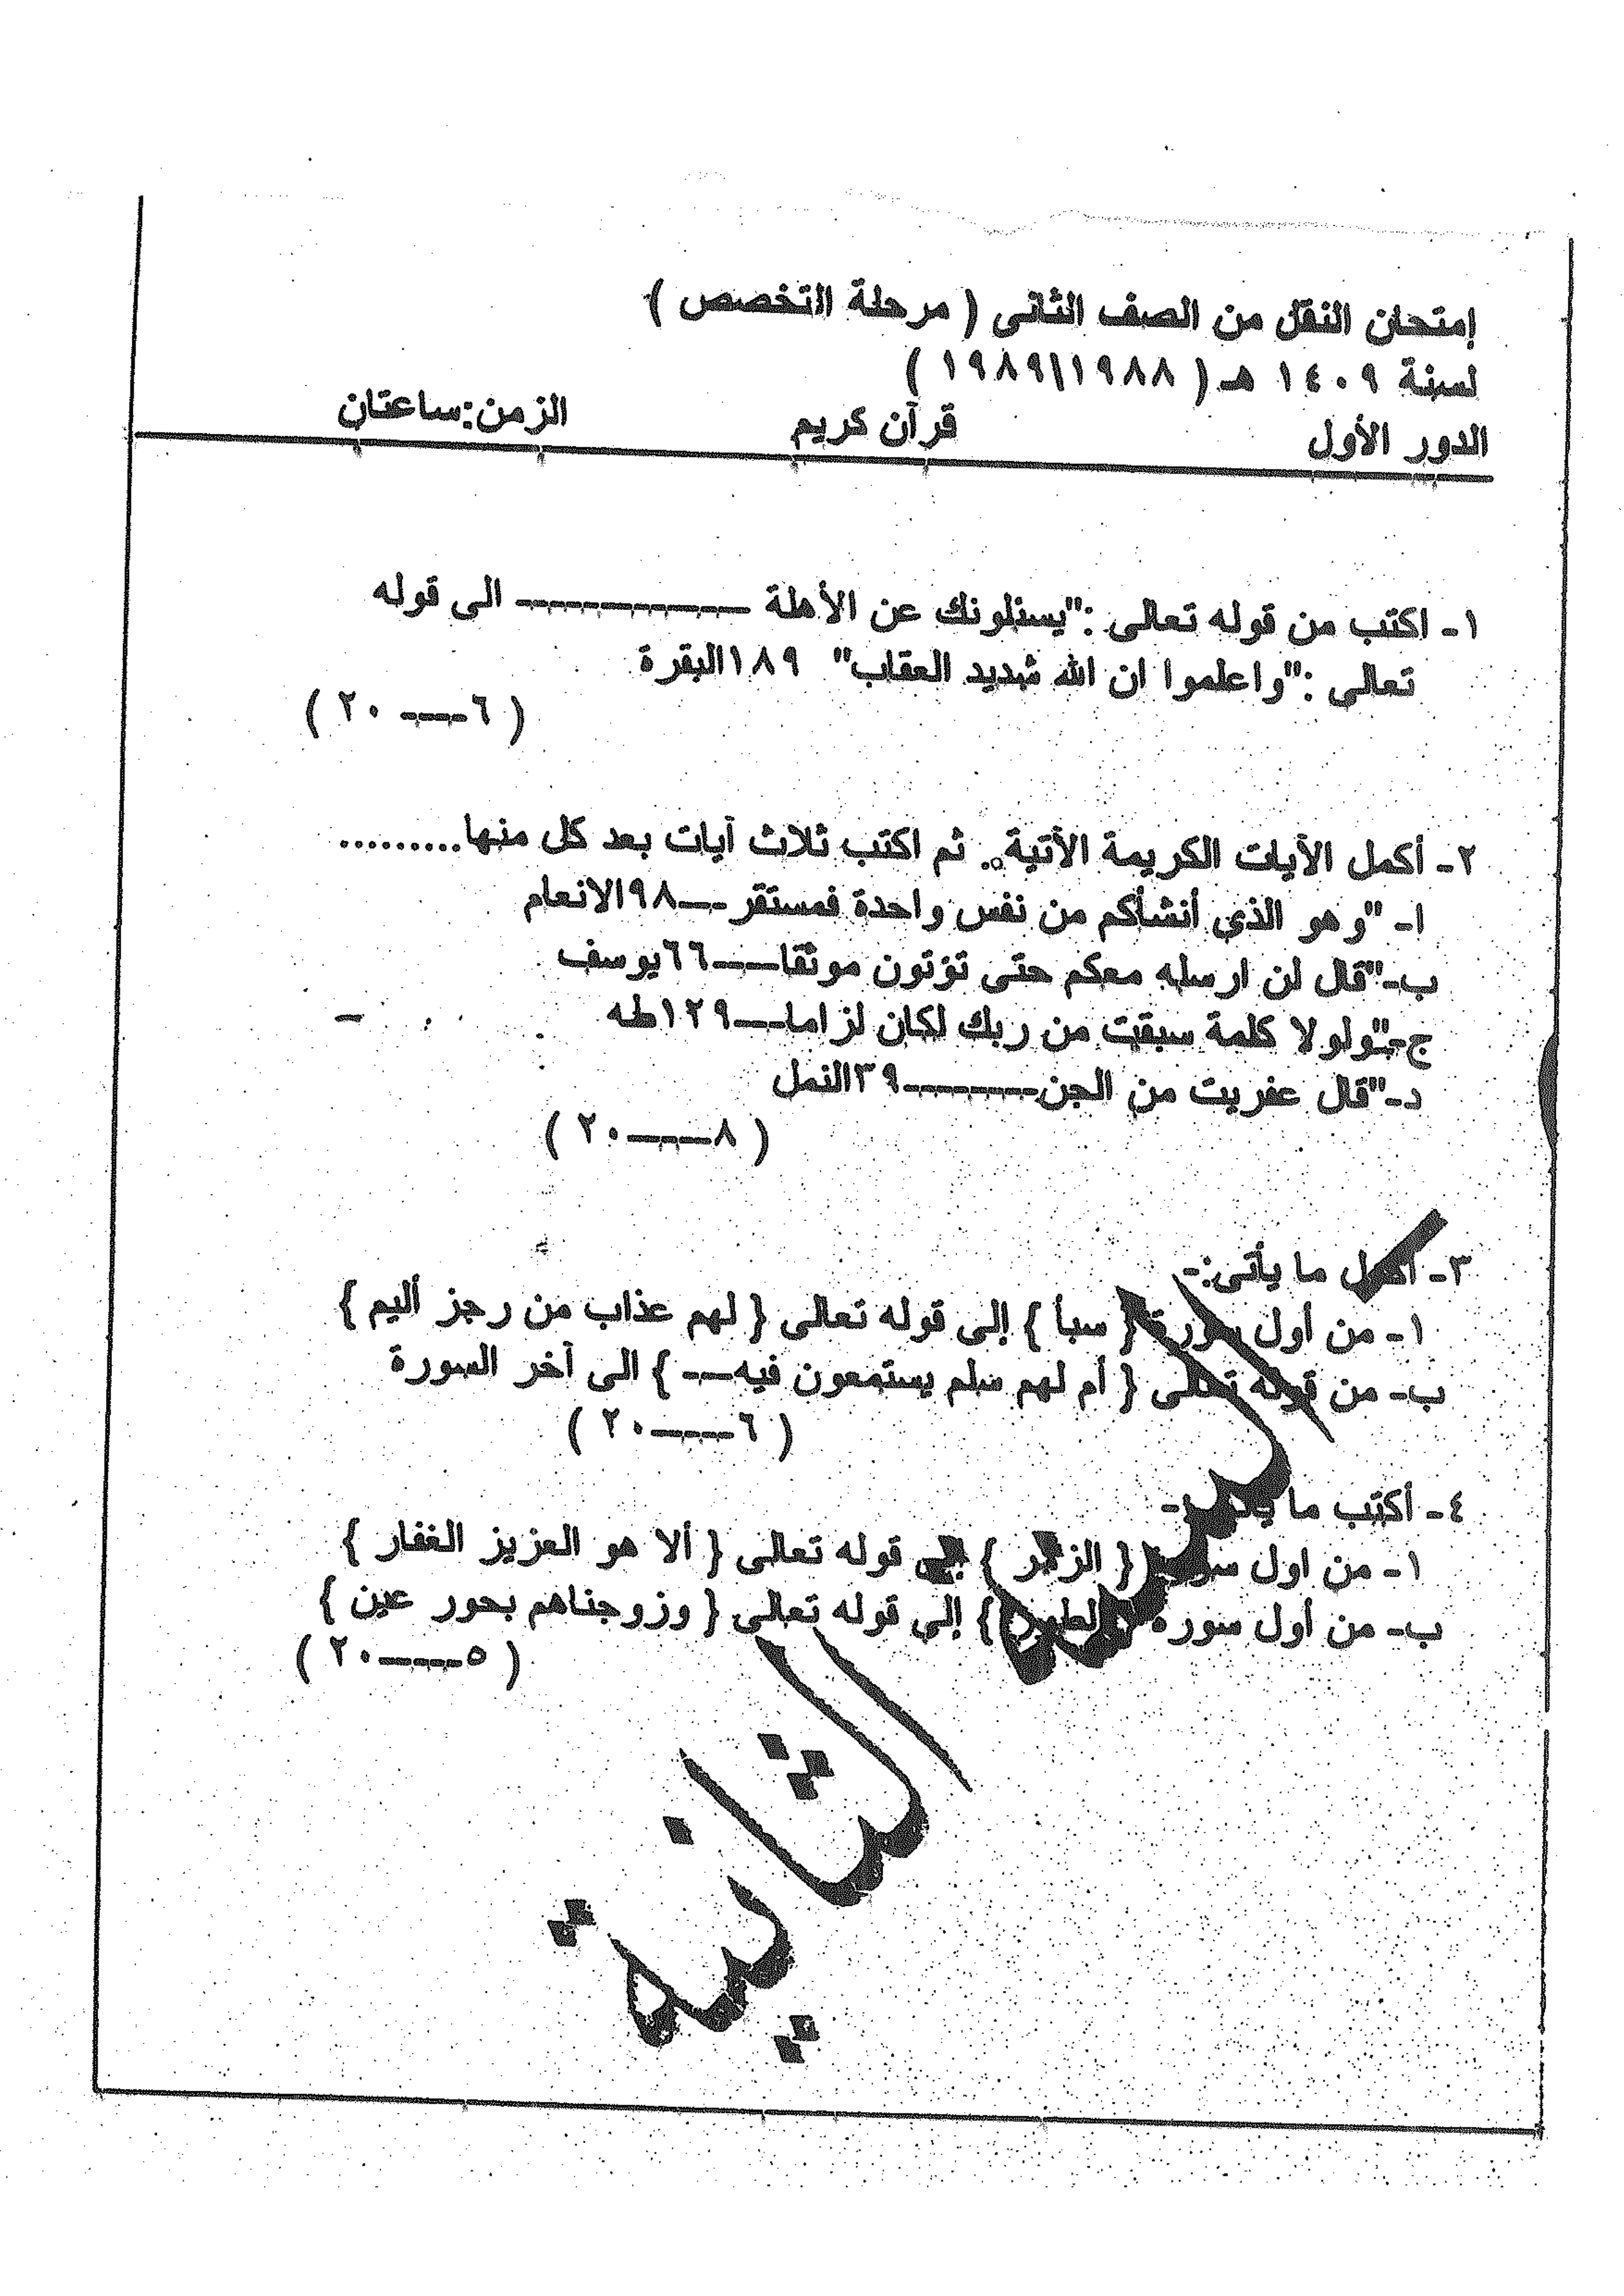 إمتحان النقل من الصف الثانى ( مرحلة التخصص )
لسنة ١٤٠٩ هـ ( ١٩٨٩/١٩٨٨ )
الدور الأول قرآن كريم الزمن:ساعتان
١- اكتب من قوله تعالى :"يسئلونك عن الأهلة ـــــــــــ الى قوله
تعالى :"واعلموا ان الله شديد العقاب" ١٨٩البقرة
( ٦ــــ ٢٠ )
٢- أكمل الآيات الكريمة الأتية.. ثم اكتب ثلاث آيات بعد كل منها.........
ا- "وهو الذي أنشأكم من نفس واحدة فمستقر-ــ٩٨الانعام
ب-"قال لن ارسله معكم حتى تؤتون موثقا-ـــ٦٦يوسف
ج-"ولولا كلمة سبقت من ربك لكان لزاما-ــ١٢٩طه
د-"قال عفريت من الجن-ـــــــــ٣٩النمل
( ٨ـــــ٢٠ )
٣- أكمل ما يأتى:-
١- من أول سورة { سبأ } إلى قوله تعالى { لهم عذاب من رجز أليم }
ب- من قوله تعالى { أم لهم سلم يستمعون فيه-ــ } الى آخر السورة
( ٦ـــــ٢٠ )
٤- أكتب ما :-
١- من اول سورة { الزمر } إلى قوله تعالى { ألا هو العزيز الغفار }
ب- من أول سورة { الطور } إلى قوله تعالى { وزوجناهم بحور عين }
( ٥ـــــ٢٠ )
الثانية